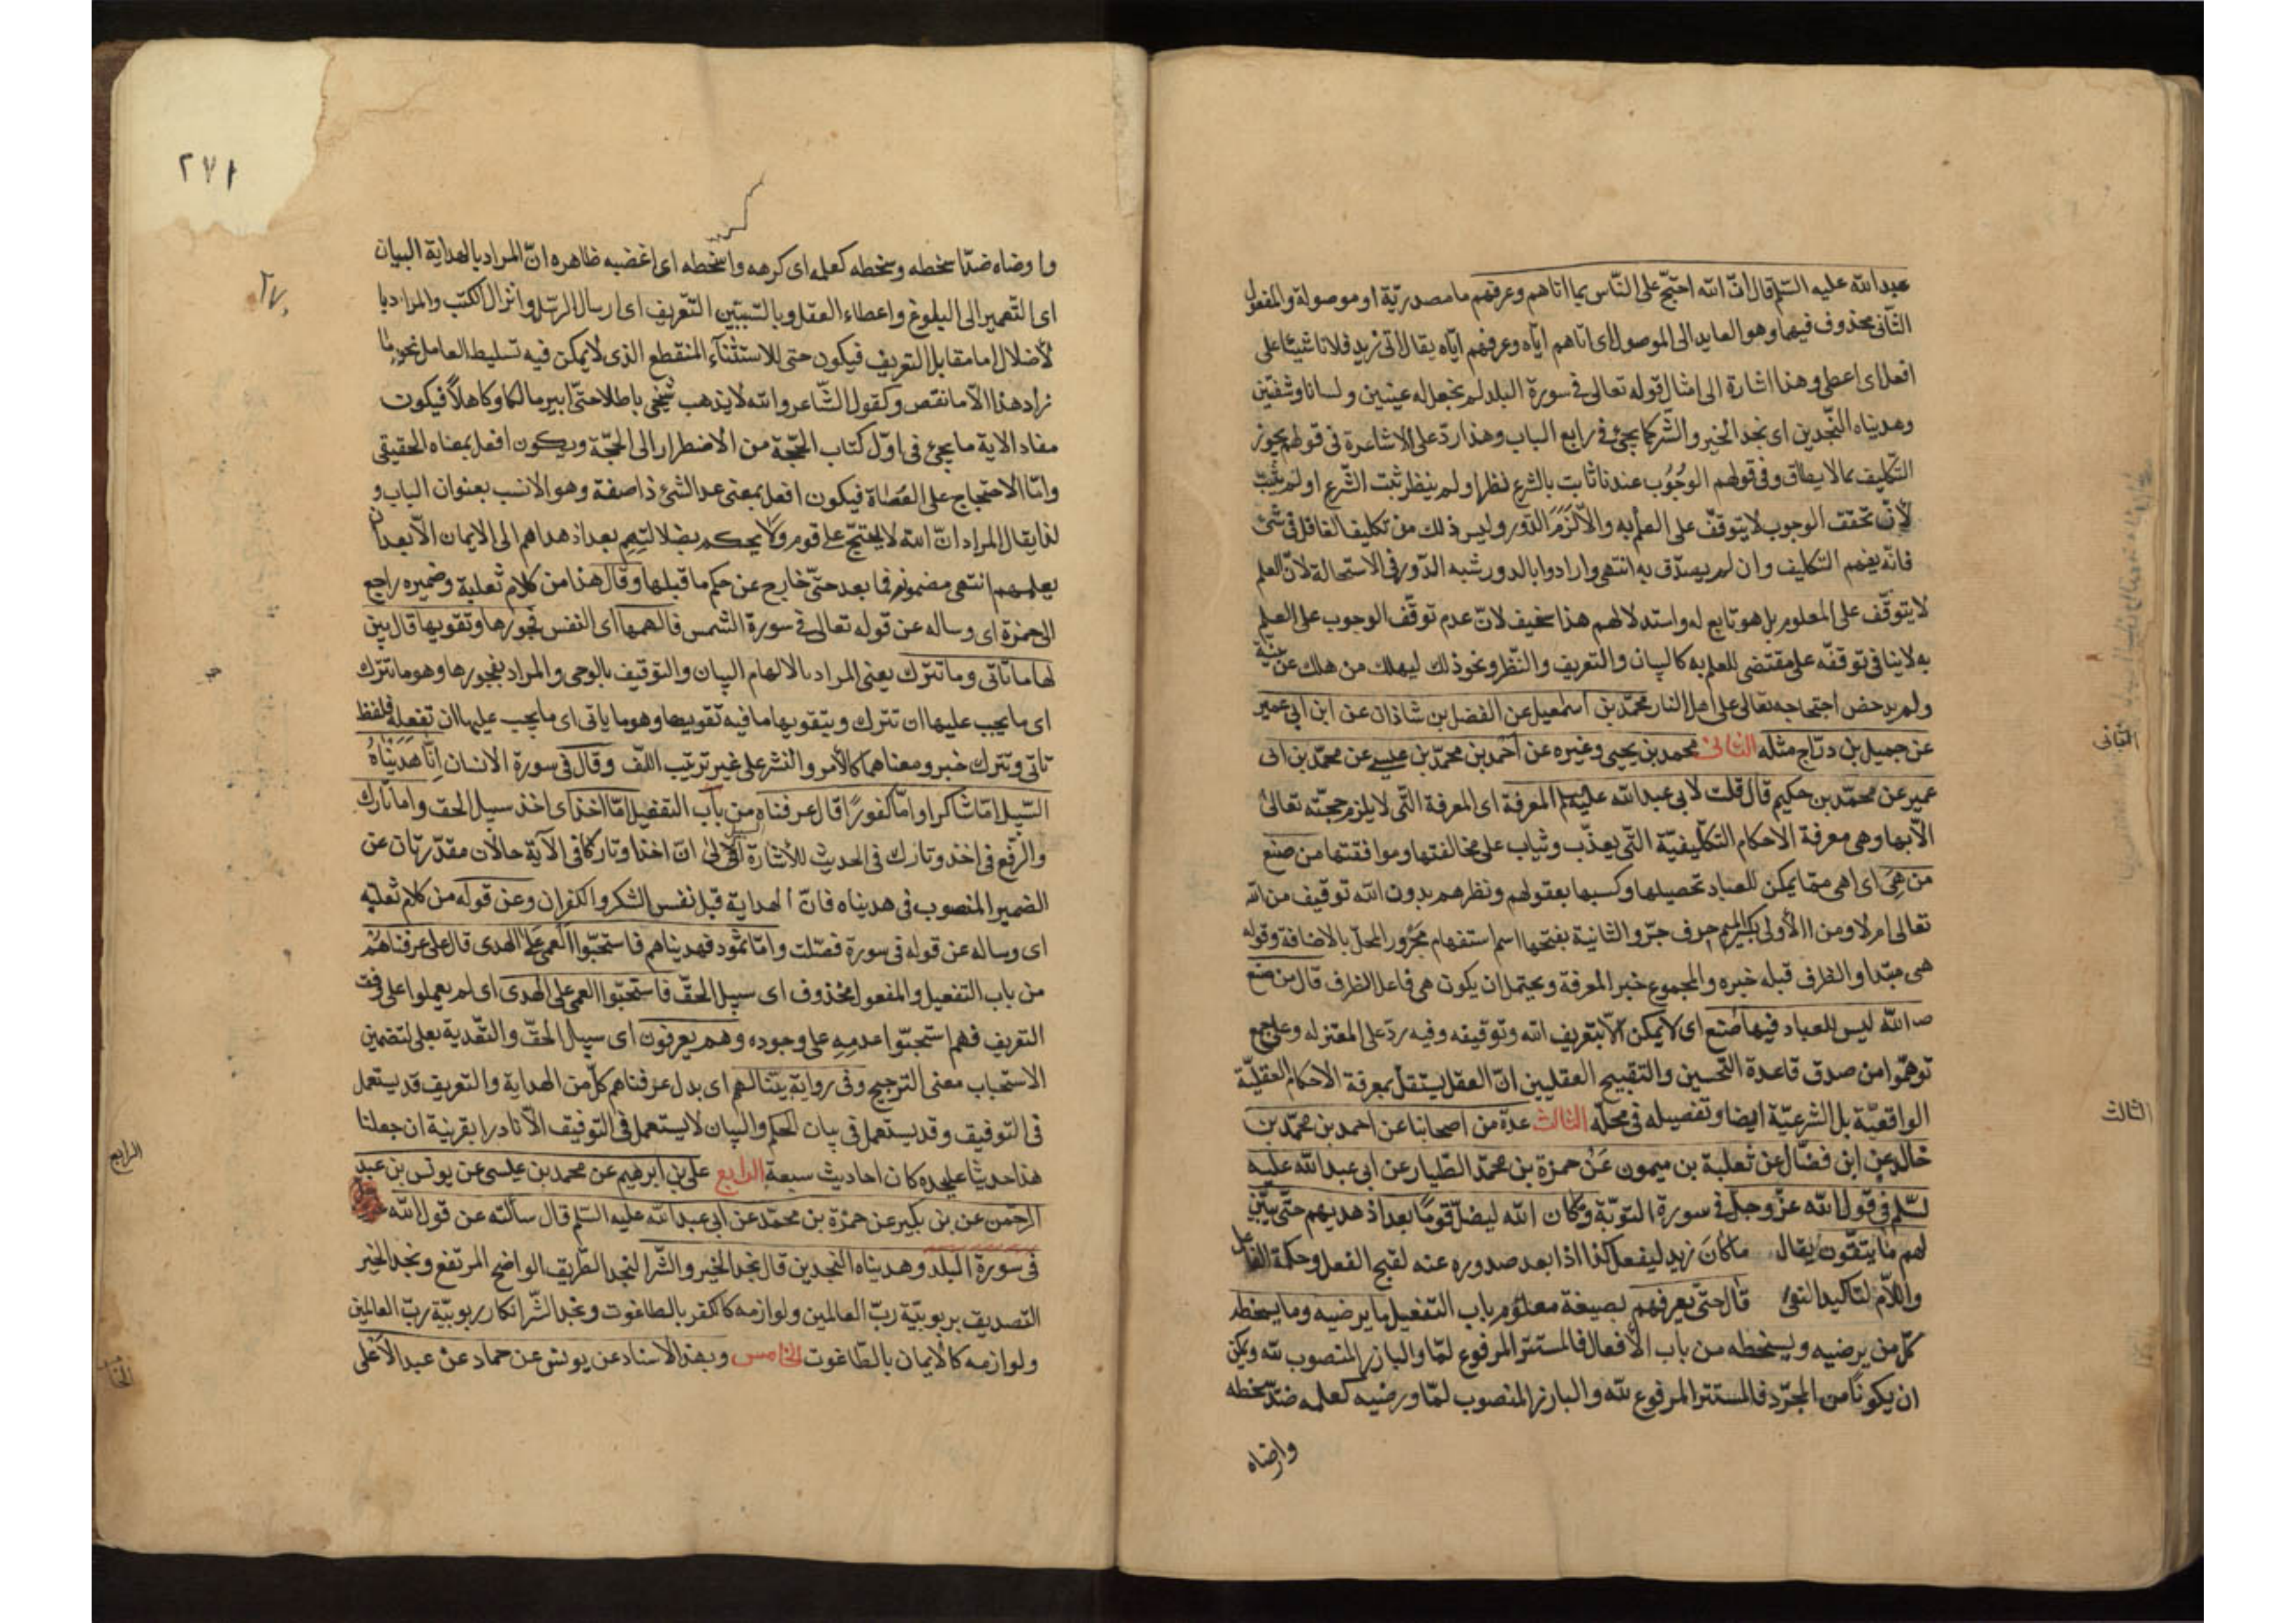 عبدالله عليه السّلم قال انّ الله احتجّ على النّاس بما اتاهم وعرفهم ما مصدريّة او موصولة والمفعول
الثّانى محذوف فيها وهو العايد الى الموصول اى اتاهم ايّاه وعرفهم ايّاه يقال اتى زيد فلانا شيئا على
افعل اى اعطى وهذا اشارة الى امثال قوله تعالى فى سورة البلد لم نجعل له عينين ولسانا وشفتين
وهديناه النّجدين اى نجد الخير والشّر كما يجئ فى رابع الباب وهذا ردّ على الاشاعرة فى قولهم يجوز
التّكليف بما لا يطاق وفى قولهم الوجوب عندنا ثابت بالشرع نظر او لم ينظر ثبت الشّرع او لم يثبت
لانّ تحقق الوجوب لا يتوقّف على العلم به والّا لزم الدّور وليس ذلك من تكليف الغافل فى شئ
فانّه يفهم التكليف وان لم يصدّق به انتهى وارادوا بالدور شبه الدّور فى الاستحالة لانّ العلم
لا يتوقّف على المعلوم بل هو تابع له واستدلالهم هذا سخيف لانّ عدم توقّف الوجوب على العلم
به لا ينافى توقفه على مقتضى للعلم به كالبيان والتعريف والنّظر ونحو ذلك ليهلك من هلك عن بيّنة
ولم يدحض احتجاجه تعالى على اهل النار محمّد بن اسمعيل عن الفضل بن شاذان عن ابن ابى عمير
عن جميل بن درّاج مثله الثانى محمد بن يحيى وغيره عن احمد بن محمّد بن عيسى عن محمّد بن ابى
عمير عن محمّد بن حكيم قال قلت لابى عبدالله عليه السلم المعرفة اى المعرفة الّتى لا يلزم حجّته تعالى
الّا بها وهى معرفة الاحكام التكليفيّة الّتى يعذّب ويثاب على مخالفتها وموافقتها من صنع
من هى اى اهى ممّا يمكن للعباد تحصيلها وكسبها بعقولهم ونظرهم بدون الله توقيف من الله
تعالى ام لا ومن الاولى بكسر الميم حرف جرّ والثانية بفتحها اسم استفهام مجرور المحلّ بالاضافة وقوله
هى مبتدا والظرف قبله خبره والمجموع خبر المعرفة ويحتمل ان يكون هى فاعل الظرف قال من صنع
الله ليس للعباد فيها صنع اى لا يمكن الّا بتعريف الله وتوقيفه وفيه ردّ على المعتزله وعلى جمع
توهّموا من صدق قاعدة التّحسين والتقبيح العقليين انّ العقل يستقلّ بمعرفة الاحكام العقليّة
الواقعيّة بل الشرعيّة ايضا وتفصيله فى محلّه الثالث عدة من اصحابنا عن احمد بن محمّد بن
خالد عن ابن فضّال عن ثعلبة بن ميمون عن حمزة بن محمّد الطّيار عن ابى عبدالله عليه
السّلم فى قول الله عزّ وجلّ فى سورة التوبة وما كان الله ليضلّ قوما بعد اذ هديهم حتّى يبيّن
لهم ما يتّقون يقال ما كان زيد ليفعل كذا اذا بعد صدوره عنه لقبح الفعل وحكمة الفاعل
واللّام لتاكيد النفى قال حتّى يعرفهم بصيغة معلوم باب التفعيل ما يرضيه وما يسخطه
كلّ من يرضيه ويسخطه من باب الافعال فالمستتر المرفوع لمّا والبارز المنصوب لله ويمكن
ان يكونا من المجرّد فالمستتر المرفوع لله والبارز المنصوب لمّا ورضيه كعلمه ضدّ سخطه
وارضاه
الثانى
الثالث
٢٧١
وارضاه ضدّ اسخطه وسخطه كعلمه اى كرهه واسخطه اى اغضبه ظاهره انّ المراد بالهداية البيان
اى التّعمير الى البلوغ واعطاء العقل وبالتبيين التّعريف اى ارسال الرّسل وانزال الكتب والمراد با
لأضلال اما مقابل التعريف فيكون حتى للاستثناء المنقطع الذى لا يمكن فيه تسليط العامل نحو ما
زاد هذا الّا ما نقص وكقول الشّاعر والله لا يذهب شيخى باطلا حتّى ابير مالكا وكاهلاً فيكون
مفاد الاية ما يجئ فى اوّل كتاب الحجّة من الاضطرار الى الحجّة ويكون افعل بمعناه الحقيقى
وامّا الاحتجاج على العصاة فيكون افعل بمعنى عد الشئ ذا صفة وهو الانسب بعنوان الباب و
لذا يقال المراد انّ الله لا يحتجّ على قوم ولا يحكم بضلالتهم بعد اذ هداهم الى الايمان الّا بعد ان
يعلمهم انتهى مضمونه فما بعد حتّى خارج عن حكم ما قبلها وقال هذا من كلام ثعلبة وضميره راجع
الى حمزة اى وساله عن قوله تعالى فى سورة الشمس فالهمها اى النفس فجورها وتقويها قال بين
لها ما تاتى وما تترك يعنى المراد بالالهام البيان والتوقيف بالوحى والمراد بفجورها وهو ما تترك
اى ما يجب عليها ان تترك وبتقويها ما فيه تقويها وهو ما ياتى اى ما يجب عليها ان تفعله فلفظ
تاتى وتترك خبر ومعناهما كالأمر والنشر على غير ترتيب اللّف وقال فى سورة الانسان انّا هديناه
السّبيل امّا شاكرا وامّا كفورا قال عرفناه من باب التفعيل امّا اخذ اى اخذ سبيل الحق واما تارك
والرّفع فى اخذ وتارك فى الحديث للأشارة الى انّ اخذا وتاركا فى الآية حالان مقدّرتان عن
الضمير المنصوب فى هديناه فانّ الهداية قبل نفس الشكر والكفران وعن قوله من كلام ثعلبة
اى وساله عن قوله فى سورة فصّلت وامّا ثمود فهديناهم فاستحبّوا العمى على الهدى قال عرفناهم
من باب التفعيل والمفعول محذوف اى سبيل الحقّ فاستحبّوا العمى على الهدى اى لم يعملوا على وفق
التعريف فهم استحبّوا عدمه على وجوده وهم يعرفون اى سبيل الحقّ والتّعدية بعلى لتضمين
الاستحباب معنى الترجيح وفى رواية بيّنا لهم اى بدل عرفناهم كلّ من الهداية والتعريف قد يستعمل
فى التوفيق وقد يستعمل فى بيان الحكم والبيان لا يستعمل فى التوفيق الّا نادرا بقرينة ان جعلنا
هذا حديثا عليحده كان احاديث سبعة الرابع على بن ابرهيم عن محمد بن عيسى عن يونس بن عبد
الرحمن عن بن بكير عن حمزة بن محمّد عن ابى عبدالله عليه السّلم قال سألته عن قول الله
فى سورة البلد وهديناه النجدين قال نجد الخير والشّر النجد الطّريق الواضح المرتفع ونجد الخير
التصديق بربوبيّة ربّ العالمين ولوازمه كالكفر بالطاغوت ونجد الشّر انكار ربوبيّة ربّ العالمين
ولوازمه كالأيمان بالطّاغوت الخامس وبهذا الاسناد عن يونس عن حماد عن عبد الأعلى
الرابع